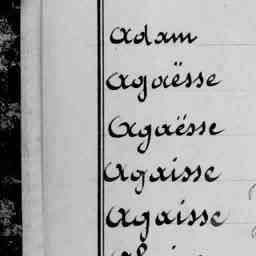 Adam
Agaësse
Agaësse
Agaisse
Agaisse